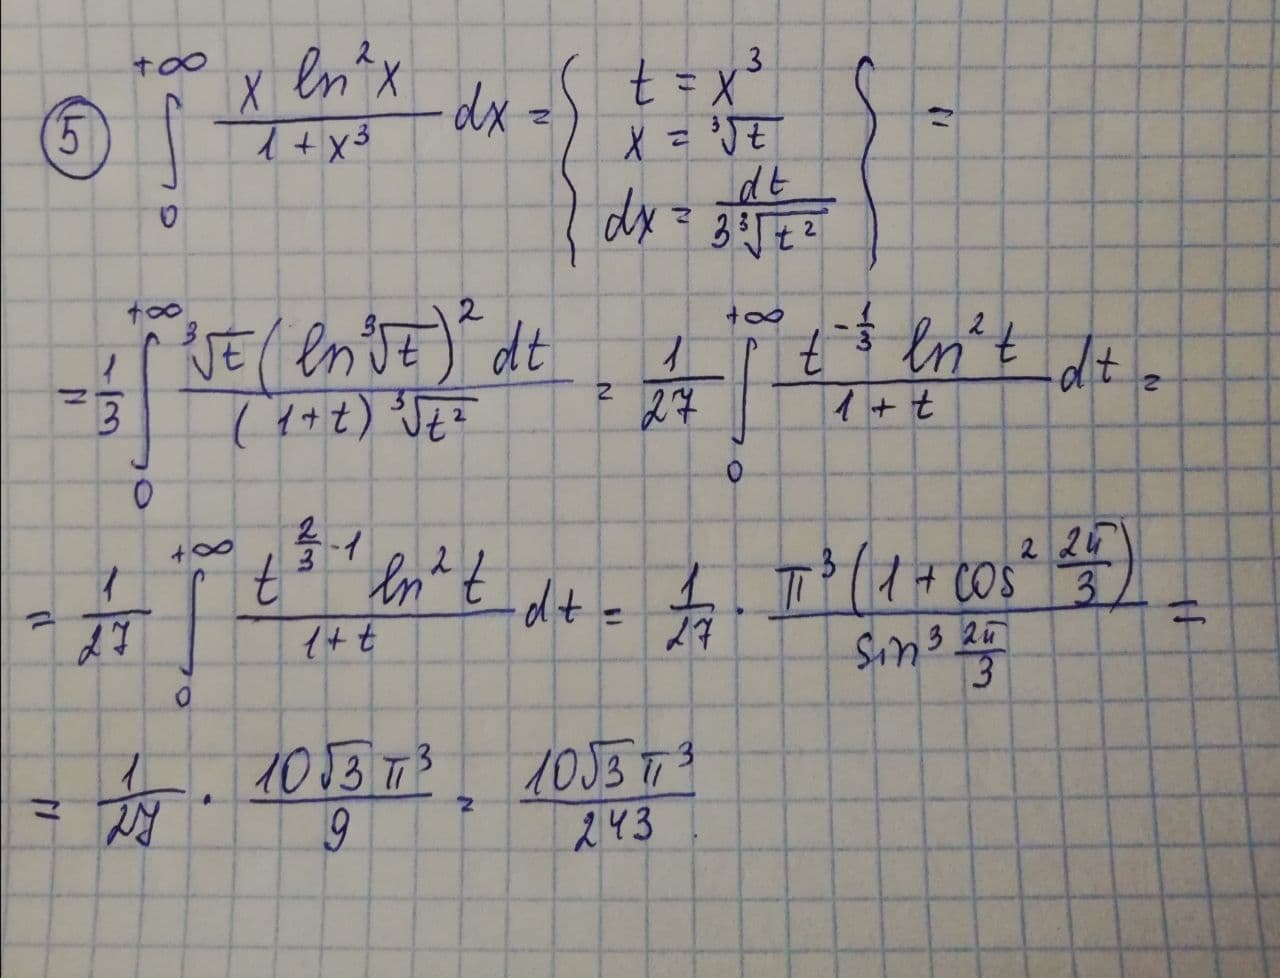 ⑤ ∫₀^{+∞} (x ln²x)/(1 + x³) dx = { t = x³
x = ∛t
dx = dt/(3∛t²) } =
= 1/3 ∫₀^{+∞} (∛t (ln ∛t)² dt)/((1+t) ∛t²) = 1/27 ∫₀^{+∞} (t^{-1/3} ln²t)/(1 + t) dt =
= 1/27 ∫₀^{+∞} (t^{2/3 - 1} ln²t)/(1 + t) dt = 1/27 · (π³(1 + cos² 2π/3))/(sin³ 2π/3) =
= 1/27 · (10√3 π³)/9 = (10√3 π³)/243 .